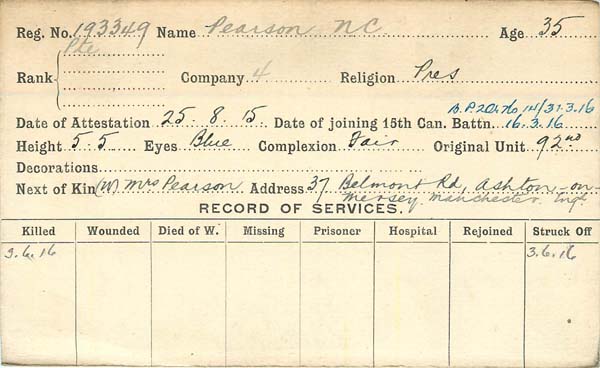 Reg. No. 193349 Name Pearson N C Age 35
Pte
Rank Company 4 Religion Pres
B.P. 20 14/31.3.16
Date of Attestation 25. 8. 15. Date of joining 15th Can. Battn. 16.3.16
Height 5.5 Eyes Blue Complexion Fair Original Unit 92nd
Decorations
Next of Kin (W) Mrs Pearson Address 37 Belmont Rd, Ashton-on-
Mersey Manchester. Eng.
RECORD OF SERVICES.
Killed Wounded Died of W. Missing Prisoner Hospital Rejoined Struck Off
3.6.16 3.6.16